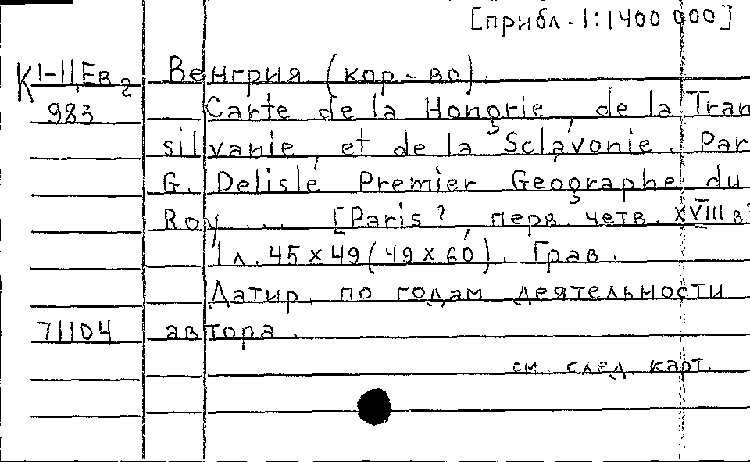 [прибл. 1:1400 000]
К 1-11,Ев 2 Венгрия (кор-во).
983 Carte de la Hongrie, de la Tran
silvanie et de la Sclavonie. Par
G. Delisle Premier Geographe du
Roy ... [Paris? перв. четв. XVIII в
1 л. 45 х 49 (49 х 60). Грав.
Датир. по годам деятельности
71104 автора.
см. след. карт.